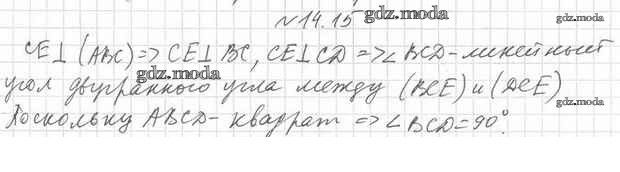 №14.15 gdz.moda
gdz.moda
CE⊥(ABC)=>CE⊥BC, CE⊥CD =>∠BCD-линейный
gdz.moda
угол двугранного угла между (BCE) и (DCE)
gdz.moda
Поскольку ABCD-квадрат =>∠BCD=90°.